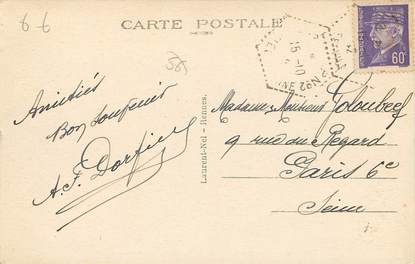 6 6
CARTE POSTALE
35
15-10
60c
Amitiés
Bon souvenir
A.F. Dorfin
Laurent-Nel - Rennes.
Madame, Monsieur Goloubeef
9 rue du Regard
Paris 6e
Seine